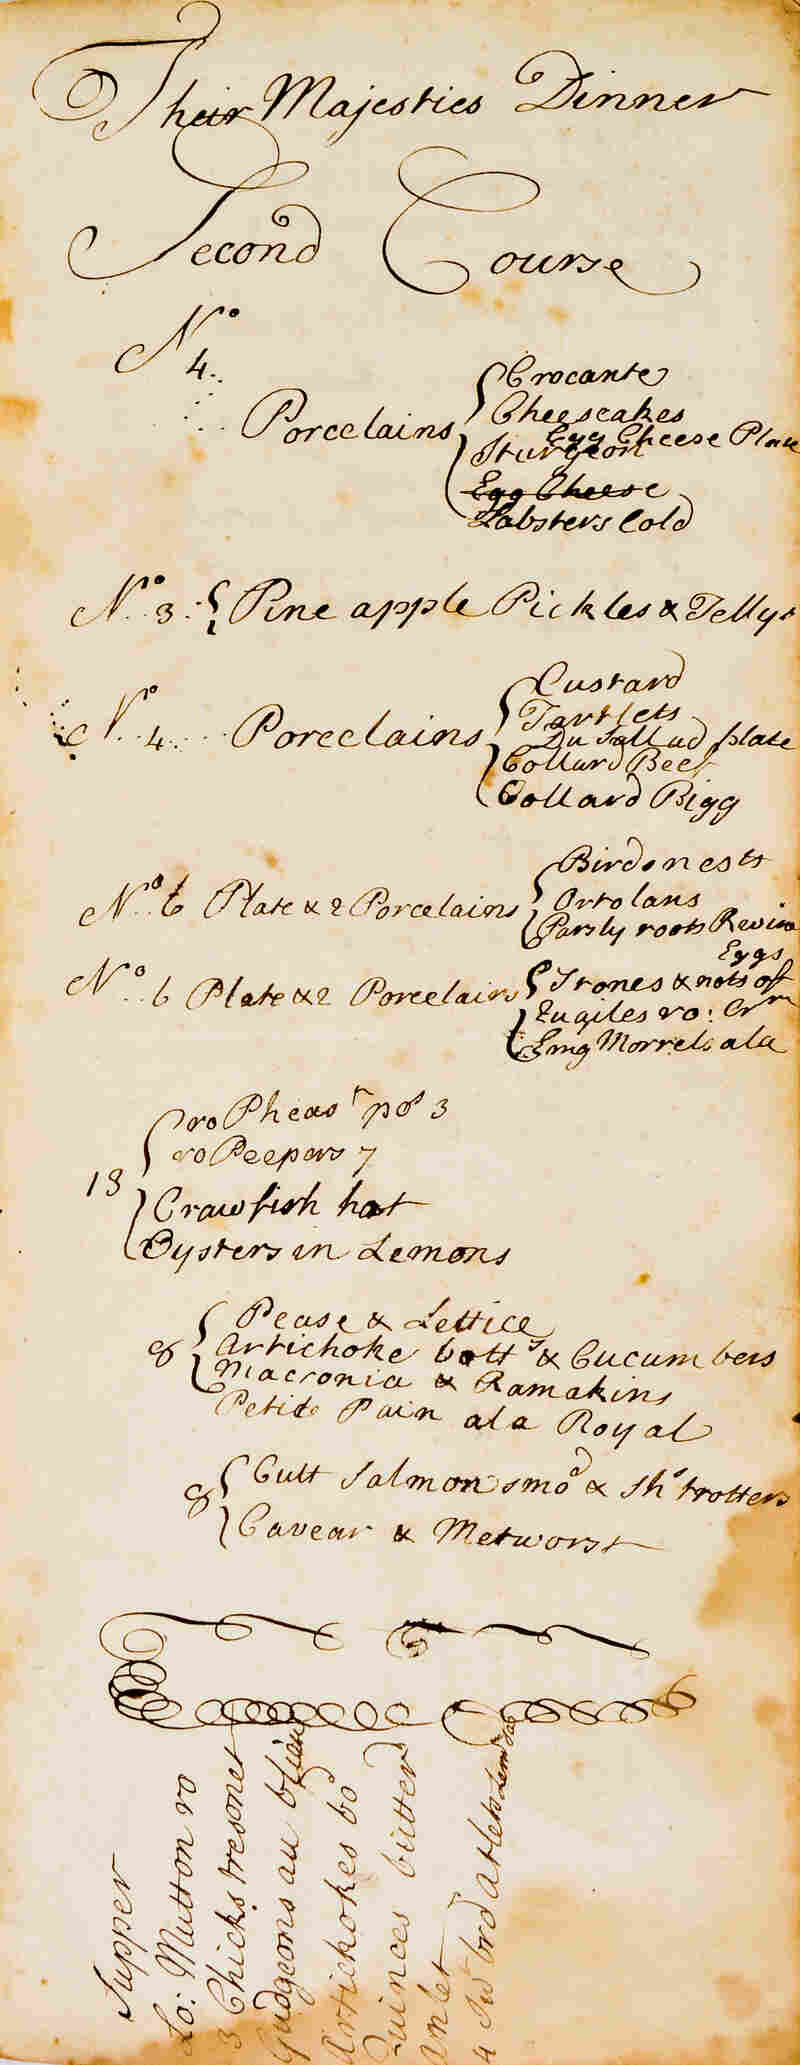 Their Majesties Dinner
Second Course
No
4.
Porcelains
Crocante
Cheescakes
Egg Cheese Plate
Sturgeon
Egg Cheese
Labsters Cold
No. 3. Pine apple Pickles & Jellys
No. 4. Porcelains
Custard
Tartlets
Du Sallad plate
Collard Beef
Collard Pigg
No. 6 Plate & 2 Porcelains
Birds nests
Ortolans
Parsly roots
Eggs
No. 6 Plate & 2 Porcelains
Stones & nots off
ro:
Morrels ala
13
ro Pheast pos 3
ro Peepers 7
Crawfish hot
Oysters in Lemons
8
Pease & Lettice
Artichoke botts & Cucumbers
Macronia & Ramakins
Petite Pain ala Royal
8
Cutt Salmon smod & Shs trotters
Cavear & Metworst
Supper
Lo: Mutton ro
3 Chicks tresonet
Gudgeons au
Artichokes bo
Quinces butterd
anlet
4 Swt brd atlets